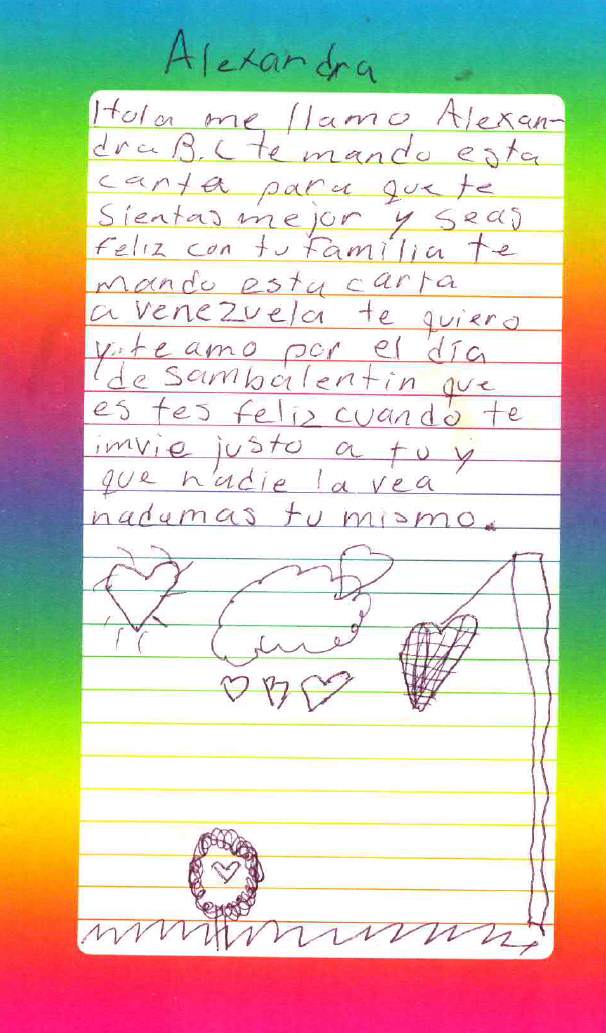 Alexandra
Hola me llamo Alexan-
dra B.C te mando esta
carta para que te
sientas mejor y seas
feliz con tu familia te
mando esta carta
a venezuela te quiero
y te amo por el día
de sambalentin que
estes feliz cuando te
imvie justo a tu y
que nadie la vea
nadamas tu mismo.